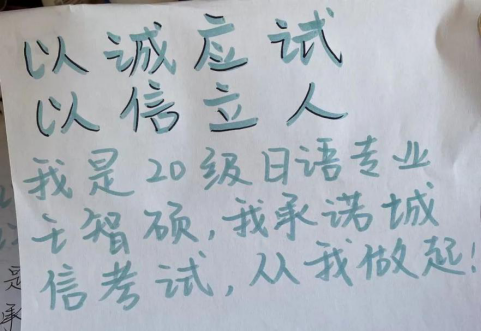 以诚应试
以信立人
我是20级日语专业
王智硕,我承诺城
信考试,从我做起!
是
承